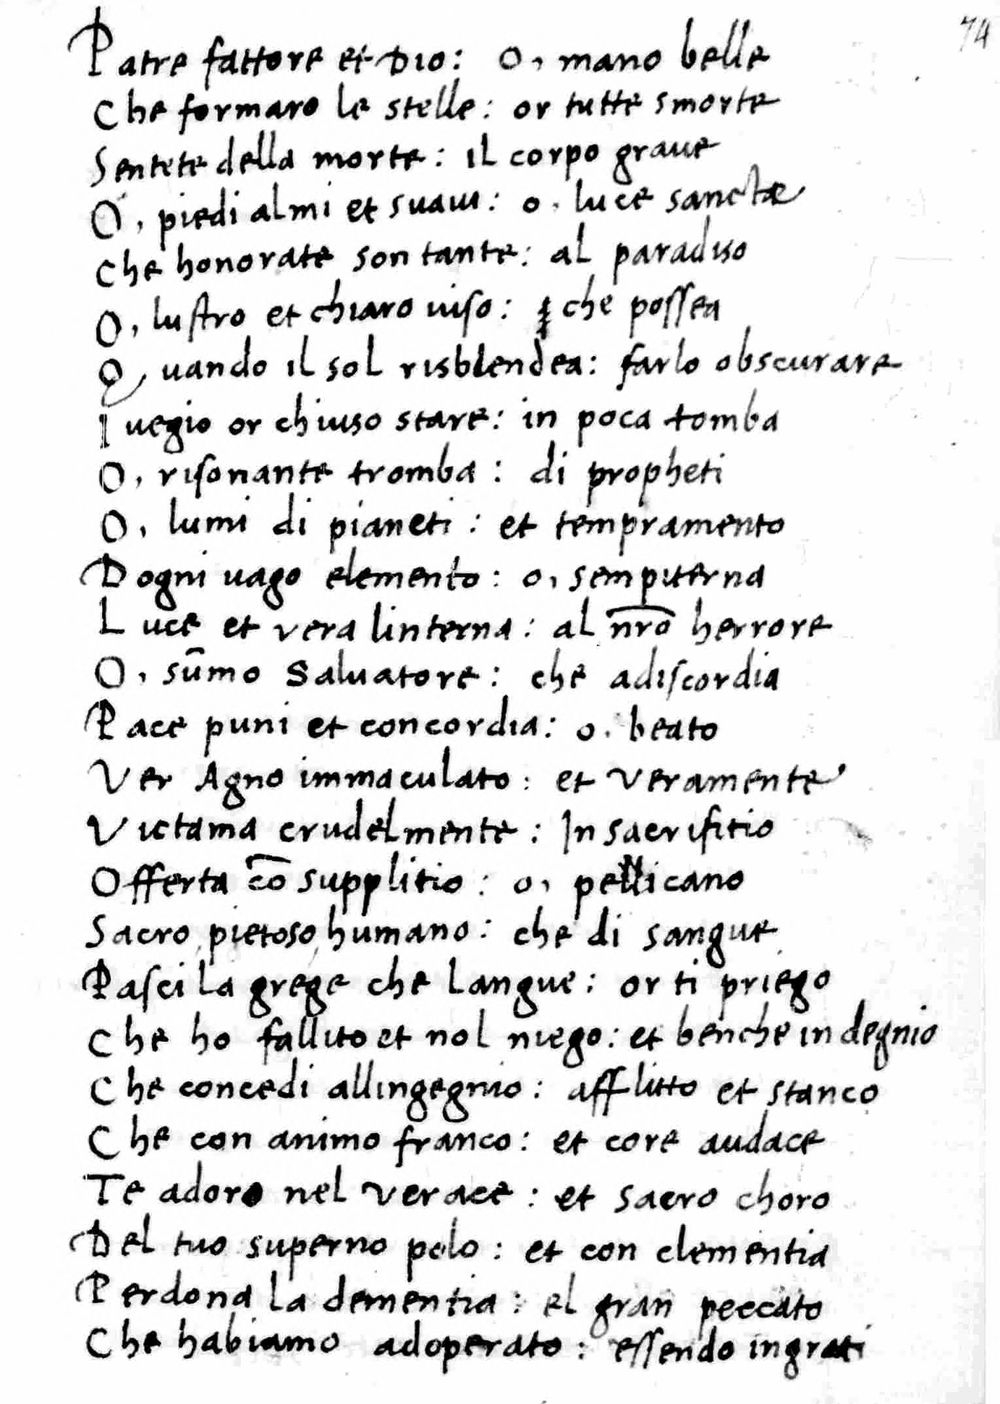 74
Patre fattore et Dio: O, mano belle
Che formaro le stelle: or tutte smorte
Sentete della morte: il corpo graue
O, piedi almi et suaui: o, luce sanctæ
Che honorate son tante: al paradiso
O, lustro et chiaro uiso: che possea
Quando il sol risblendea: farlo obscurare
I uegio or chiuso stare: in poca tomba
O, risonante tromba: di propheti
O, lumi di pianeti: et tempramento
Dogni uago elemento: o, sempiterna
Luce et vera linterna: al nr̄o herrore
O, sūmo Saluatore: che adiscordia
Pace puni et concordia: o. beato
Ver Agno immaculato: et veramente
Victama crudelmente: In sacrifitio
Offerta cō supplitio: o, pellicano
Sacro, pietoso, humano: che di sangue
Pasci la grege che langue: or ti priego
Che ho fallito et nol niego: et benche indegnio
Che concedi allingegnio: afflitto et stanco
Che con animo franco: et core audace
Te adoro nel verace: et sacro choro
Del tuo superno polo: et con clementia
Perdona la dementia: el gran peccato
Che habiamo adoperato: essendo ingrati